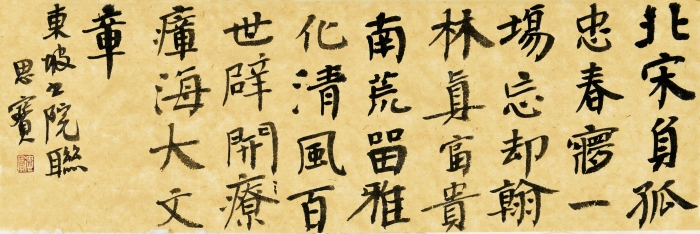 北宋負孤
忠春夢一
場忘却翰
林眞富貴
南荒留雅
化清風百
世辟開療
瘴海大文
章
東坡书院聯
思寶